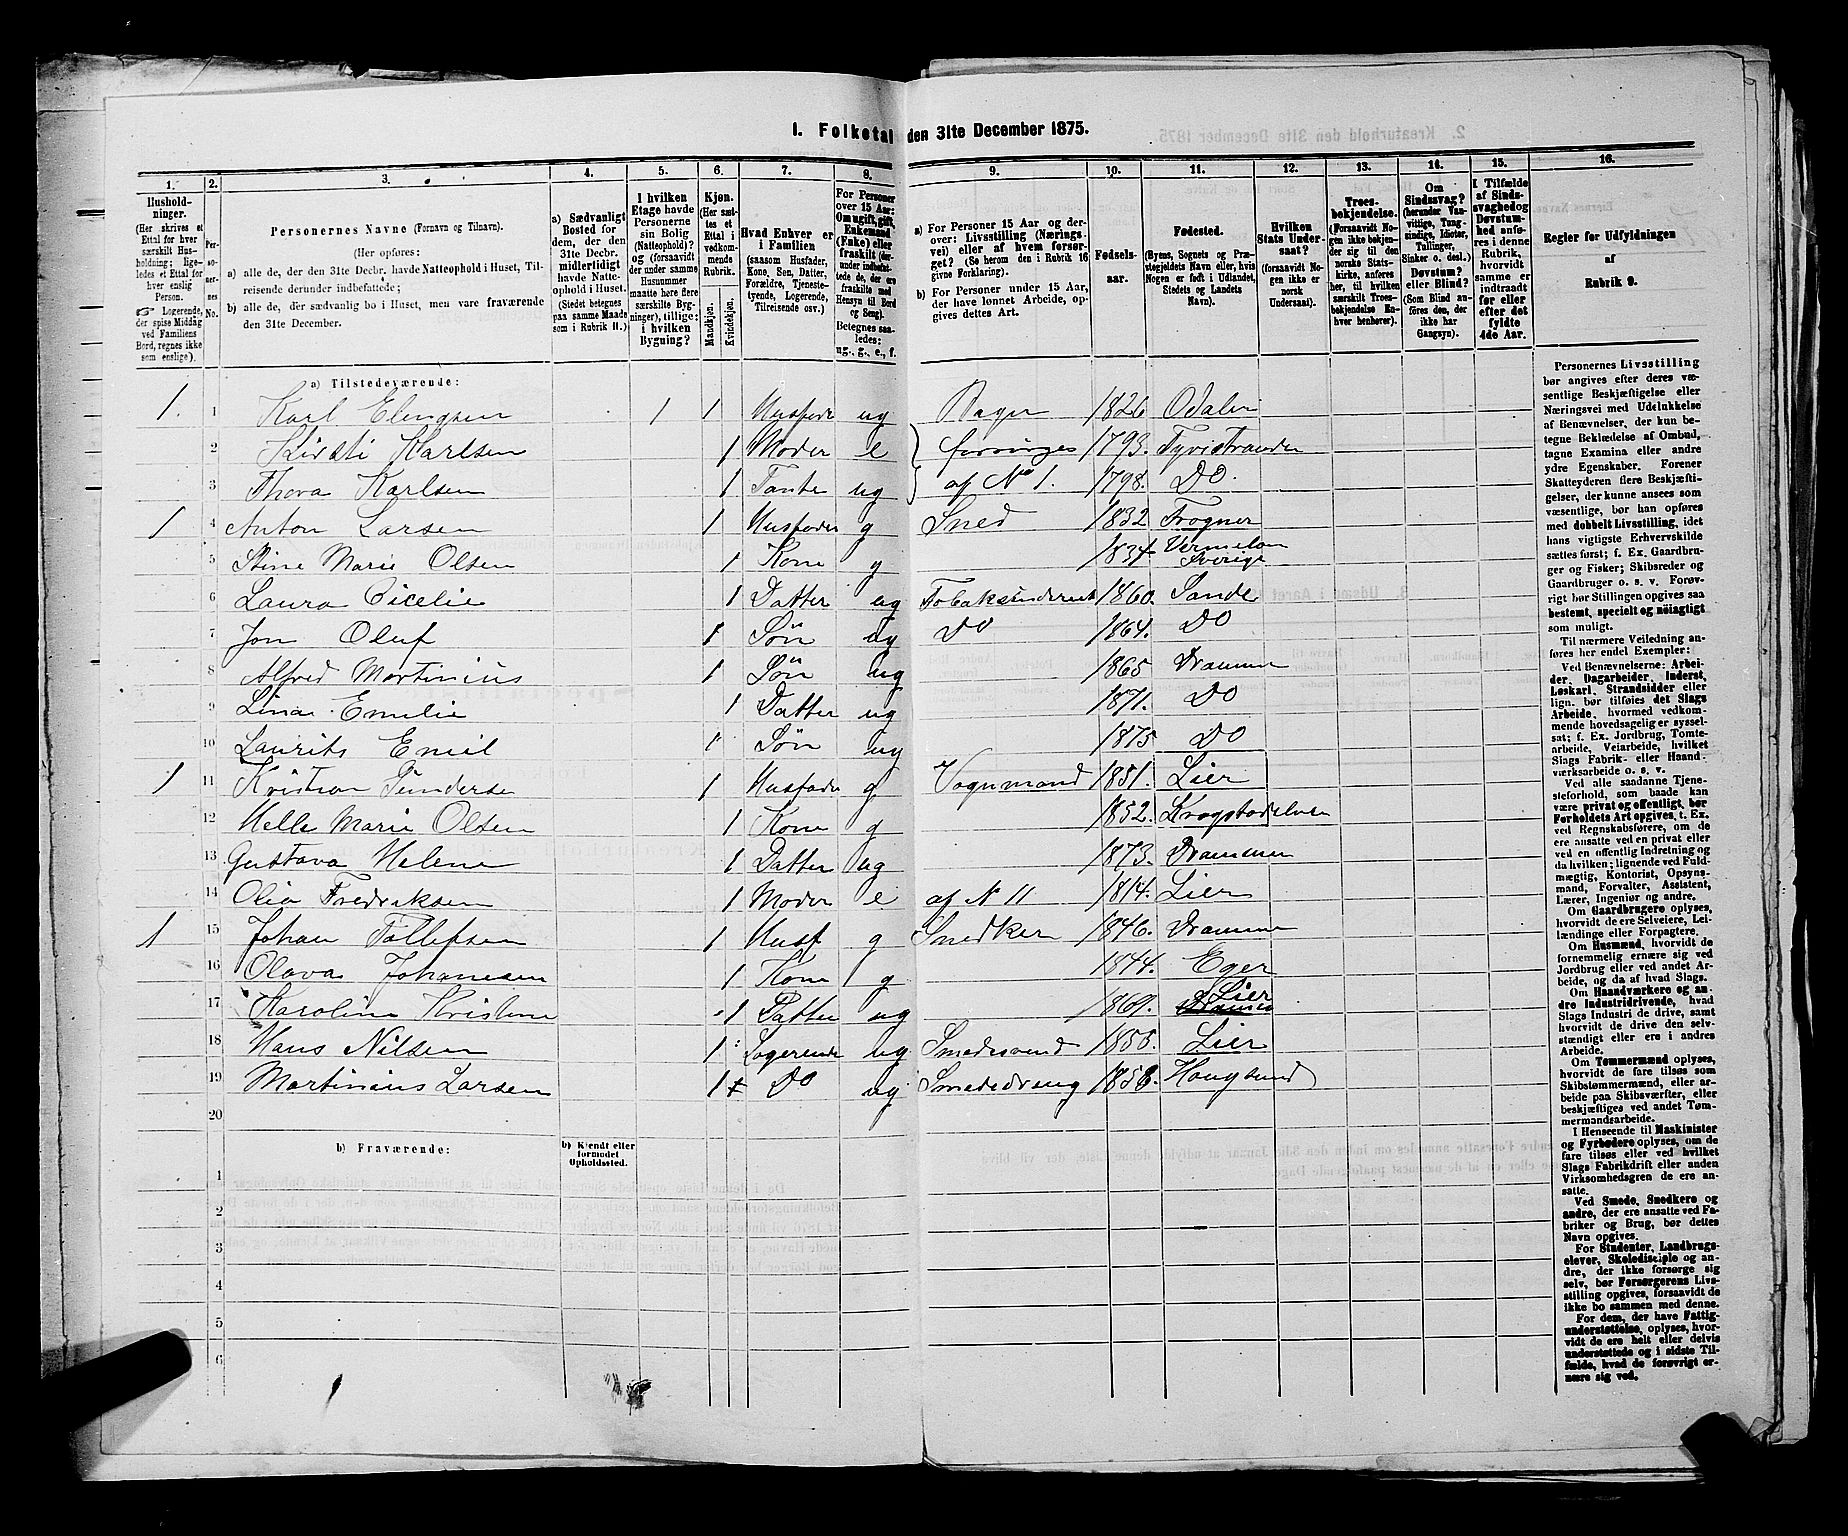 1. Folketal den 31te December 1875.
1. 2. 3. 4. 5. 6. 7. 8. 9. 10. 11. 12. 13. 14. 15. 16.
Husholdninger. (Her skrives et Ettal for hver særskilt Husholdning; ligeledes et Ettal for hver enslig Person. Logerende, der spise Middag ved Familiens Bord, regnes ikke som enslige).
Personernes No.
Personernes Navne (Fornavn og Tilnavn).
(Her opføres:
a) alle de, der den 31te Decbr. havde Natteophold i Huset, Tilreisende derunder indbefattede;
b) alle de, der sædvanlig bo i Huset, men vare fraværende den 31te December.
a) Sædvanligt Bosted for dem, der den 31te Decbr. midlertidigt havde Natteophold i Huset. (Stedet betegnes paa samme Maade som i Rubrik 11.)
I hvilken Etage havde Personerne sin Bolig (Natteophold)? og (forsaavidt der under samme Husnummer maatte høre flere særskilte Bygninger), tillige: i hvilken Bygning?
Kjøn. (Her sættes et Ettal i vedkommende Rubrik.
Mandkjøn. Kvindekjøn.
Hvad Enhver er i Familien (saasom Husfader, Kone, Søn, Datter, Forældre, Tjenestetyende, Logerende, Tilreisende osv.)
For Personer over 15 Aar: Om ugift, gift, Enkemand (Enke) eller fraskilt (derunder indbefattede de, der ere fraskilte med Hensyn til Bord og Seng). Betegnes saaledes: ug., g., e., f.
a) For Personer 15 Aar og derover: Livsstilling (Næringsvei) eller af hvem forsørget? (Se herom den i Rubrik 16 givne Forklaring).
b) For Personer under 15 Aar, der have lønnet Arbeide, opgives dettes Art.
Fødselsaar.
Fødested. (Byens, Sognets og Præstegjeldets Navn eller, hvis Nogen er født i Udlandet, Stedets og Landets Navn).
Hvilken Stats Undersaat? (forsaavidt Nogen ikke er norsk Undersaat).
Troesbekjendelse. (Forsaavidt Nogen ikke bekjender sig til den norske Statskirke, anføres her, til hvilken særskilt Troesbekjendelse Enhver henhører).
Om Sindssvag? (herunder Vanvittige, Tungsindige, Idioter, Tullinger, Sinker o. desl.) Døvstum? eller Blind? (Som Blind anføres den, der ikke har Gangsyn).
I Tilfælde af Sindssvaghed og Døvstumhed anføres i denne Rubrik, hvorvidt samme er indtraadt før eller efter det fyldte 4de Aar.
Regler for Udfyldningen af Rubrik 9.
a) Tilstedeværende:
1. 1 Karl Elingsen 1 1 Husfader ug 1826 Odalen
2 Kirsti Karlsen 1 Moder e forsørges 1793. Tyristranden
3 Thora Karlsen 1 Tante ug af No 1. 1798. DO.
1 4 Anton Larsen 1 Husfader g Sned 1832 Frogner
5 Stine Marie Olsen 1 Kone g 1834. Vermelan Sverige
6 Laura Cicelie 1 Datter ug 1860. Sande
7 Jon Oluf 1 Søn ug DO 1864. DO
8 Alfred Martinius 1 Søn ug 1865 Drammen
9 Lina Emelie 1 Datter ug 1871. DO
10 Laurits Emil 1 Søn ug 1875 DO
1 11 Kristian Gundersen 1 Husfader g Vognmand 1851. Lier
12 Helle Marie Olsen 1 Kone g 1852. Krogstadelven
13 Gustava Helene 1 Datter ug 1873. Drammen
14 Olia Fredriksen 1 Moder e af N 11 1814. Lier
1 15 Johan Tollefsen 1 Husf g Snedker 1846. Drammen
16 Olava Johansen 1 Kone g 1844. Eger
17 Karoline Kristine 1 Datter ug 1869. Lier
18 Hans Nilsen 1 Logerende ug Smedesvend 1856. Lier
19 Martinius Larsen 1 DO ug Smededreng 1858. Hougsund
20
b) Fraværende:
b) Kjendt eller formodet Opholdssted.
1
2
3
4
5
6
Personernes Livsstilling bør angives efter deres væsentlige Beskjæftigelse eller Næringsvei med Udelukkelse af Benævnelser, der kun betegne Beklædelse af Ombud, tagne Examina eller andre ydre Egenskaber. Forener Skatteyderen flere Beskjæftigelser, der kunne ansees som væsentlige, bør han opføres med dobbelt Livsstilling, idet hans vigtigste Erhvervskilde sættes først; f. Ex. Gaardbruger og Fisker; Skibsreder og Gaardbruger o. s. v. Forøvrigt bør Stillingen opgives saa bestemt, specielt og nøiagtigt som muligt.
Til nærmere Veiledning anføres her endel Exempler:
Ved Benævnelserne: Arbeider, Dagarbeider, Inderst, Løskarl, Strandsidder eller lign. bør tilføies det Slags Arbeide, hvormed vedkommende hovedsagelig er sysselsat; f. Ex. Jordbrug, Tomtearbeide, Veiarbeide, hvilket Slags Fabrik- eller Haandværksarbeide o. s. v.
Ved alle saadanne Tjenesteforhold, som baade kan være privat og offentligt, bør Forholdets Art opgives, t. Ex. ved Regnskabsførere, om de ere ansatte ved en privat eller ved en offentlig Indretning og da hvilken; lignende ved Fuldmægtig, Kontorist, Opsynsmand, Forvalter, Assistent, Lærer, Ingeniør og andre.
Om Gaardbrugere oplyses, hvorvidt de ere Selveiere, Leilændinge eller Forpagtere.
Om Husmænd, hvorvidt de fornemmelig ernære sig ved Jordbrug eller ved andet Arbeide, og da af hvad Slags.
Om Haandværkere og andre Industridrivende, hvad Slags Industri de drive, samt hvorvidt de drive den selvstændigt eller ere i andres Arbeide.
Om Tømmermænd oplyses, hvorvidt de fare tilsøs som Skibstømmermænd, eller arbeide paa Skibsværfter, eller beskjæftiges ved andet Tømmermandsarbeide.
I Henseende til Maskinister og Fyrbødere oplyses, om de fare tilsøs eller ved hvilket Slags Fabrikdrift eller anden Virksomhedsgren de ere ansatte.
Ved Smede, Snedkere og andre, der ere ansatte ved Fabriker og Brug, bør dettes Navn opgives.
For Studenter, Landbrugselever, Skoledisciple og andre, der ikke forsørge sig selv, bør Forsørgerens Livsstilling opgives, forsaavidt de ikke bo sammen med denne.
For dem, der have Fattigunderstøttelse, oplyses, hvorvidt de ere helt eller delvis understøttede og i sidste Tilfælde, hvad de forøvrigt ernære sig ved.